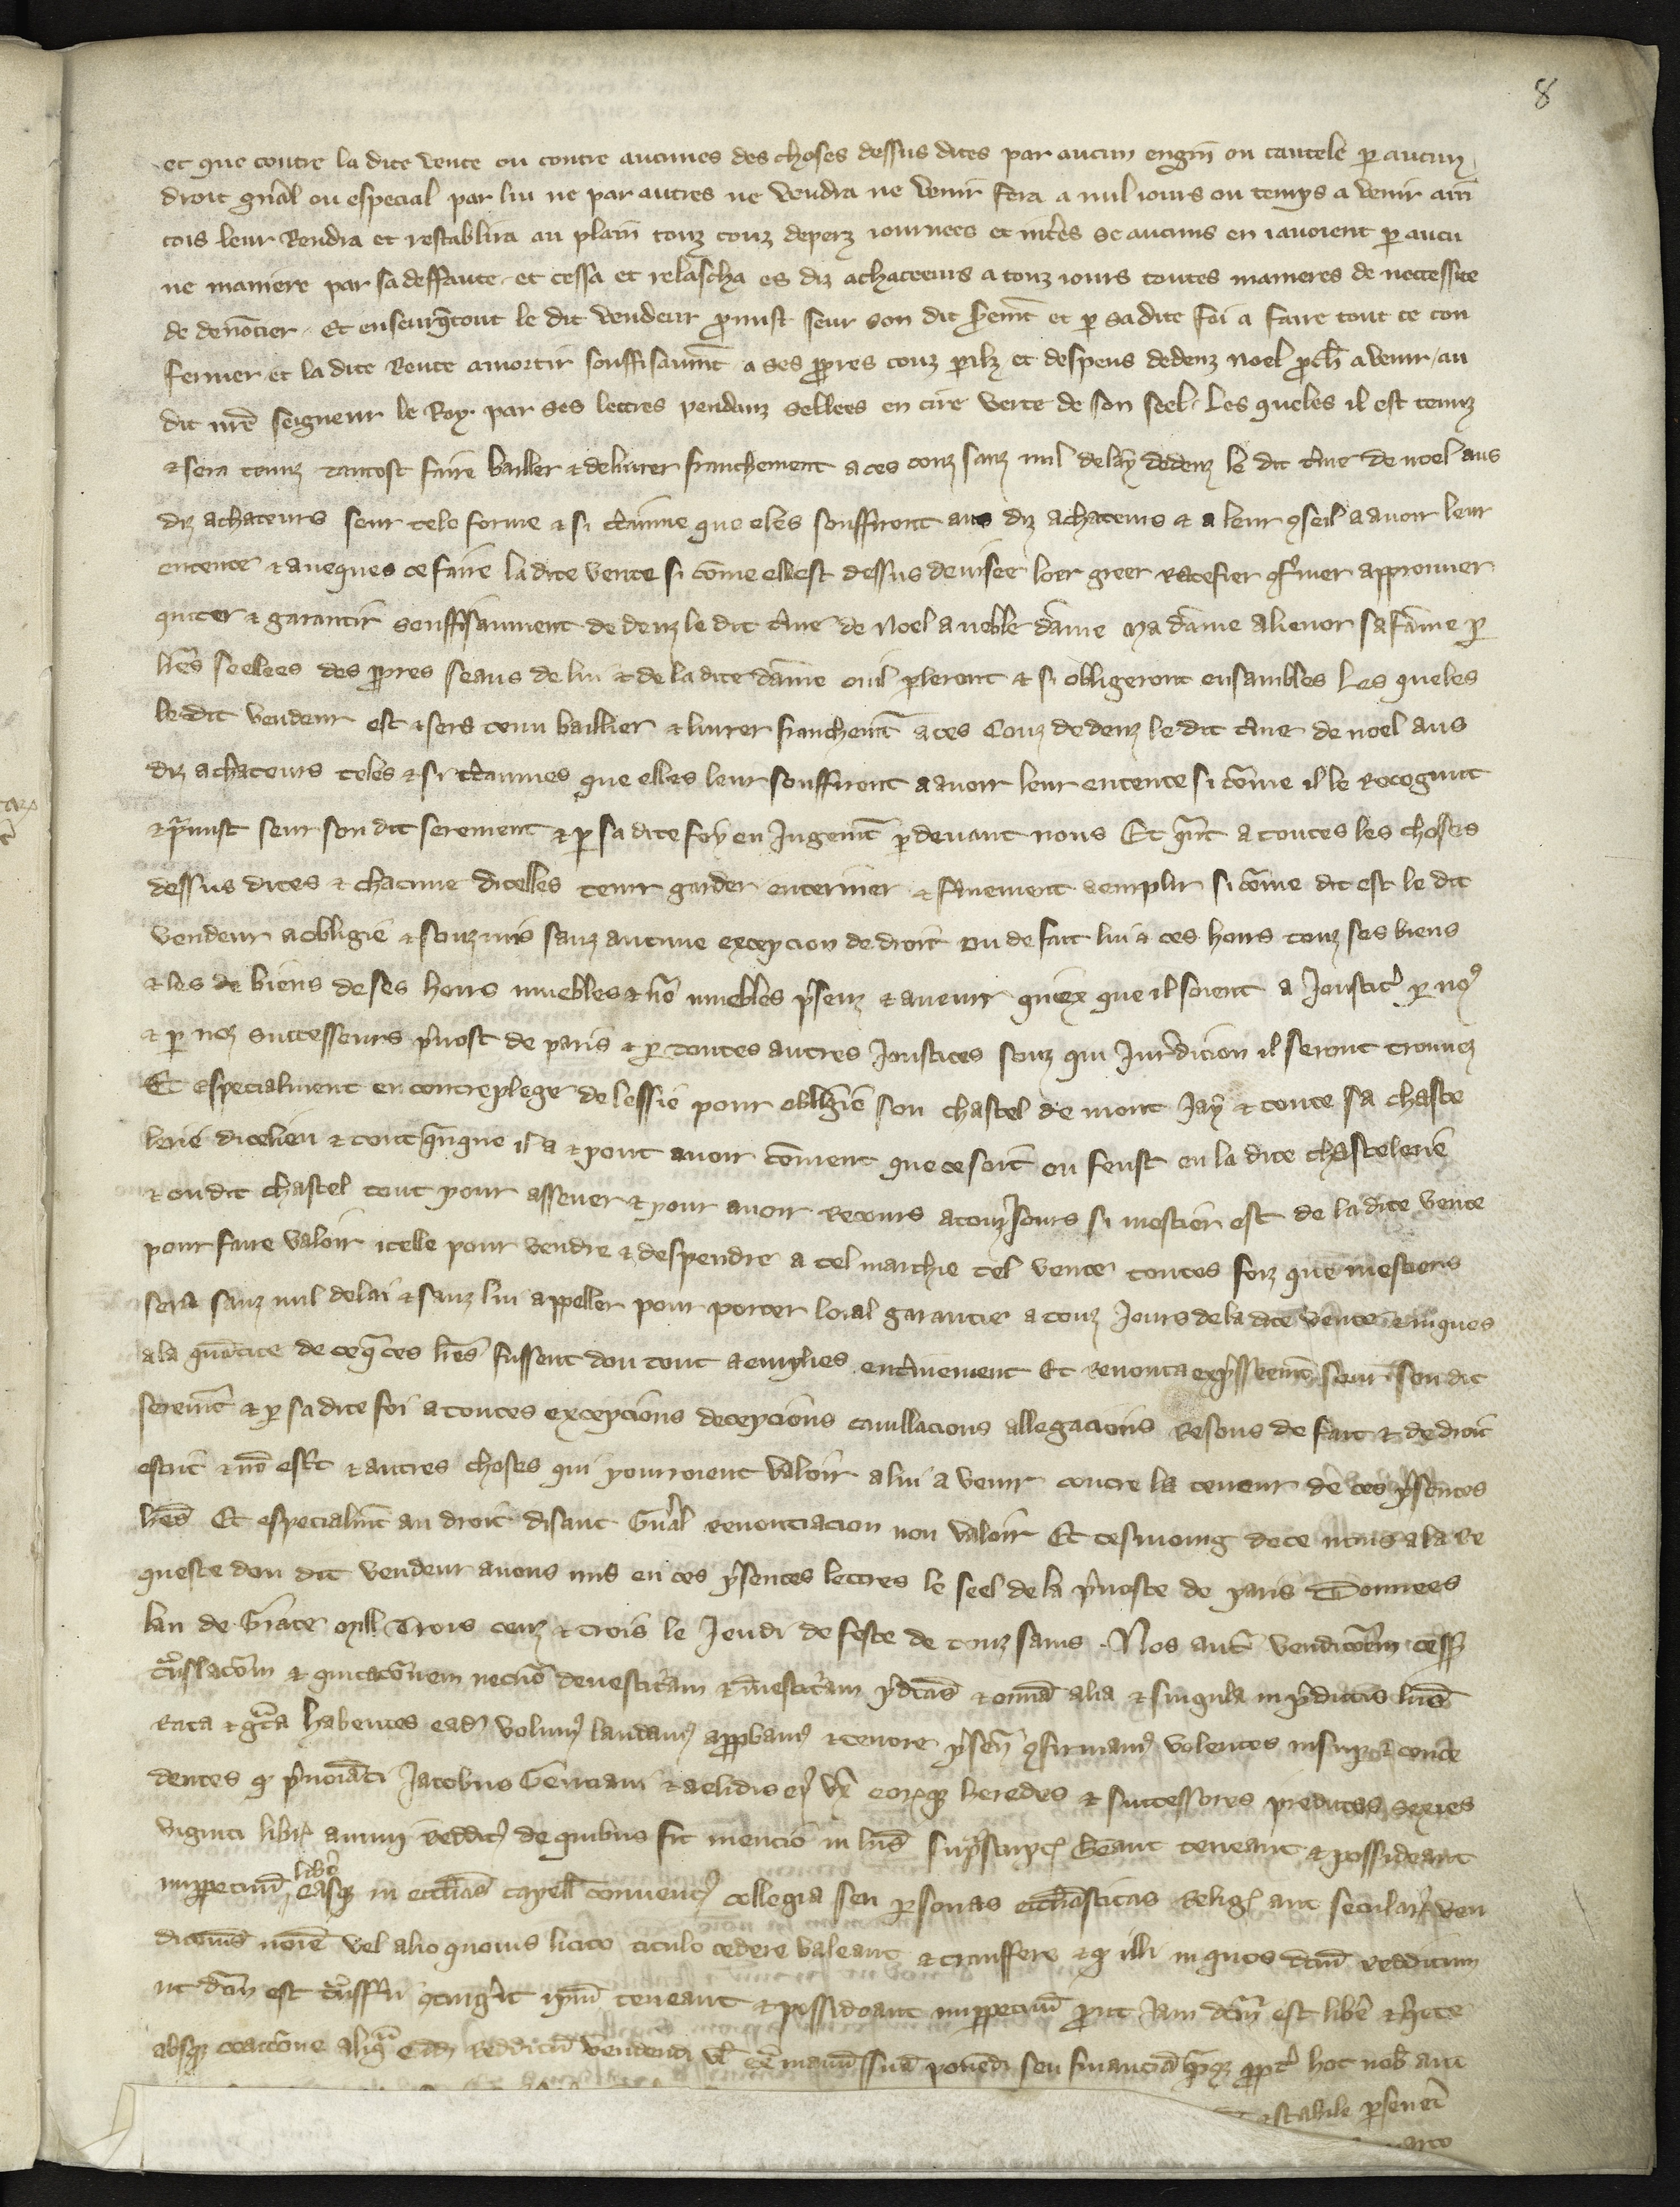 8
et que contre la dite vente ou contre aucunes des choses dessus dites par aucun engin ou cautele p aucun
droit gñal ou especial par lui ne par autres ne vendra ne venir fera a nul iours ou temps a venir ain
cois leur Rendra et restablira au plain touz couz deperz iournees et int̃es se aucuns en i auoient p aucu
ne maniere par sa deffaute et cessa et relascha es diz achateeurs a touz iours toutes manieres de neccessite
de denõcier Et enseurq̃tout le dit vendeur p̃mist seur son dit s̃emt̃ et p sa dite foi a faire tout ce con
fermer et la dite Rente amortir souffisaumt̃ a ses ppres couz perilz et despens dedenz noel p̃ch̃ a venir au
dit nr̃e seigneur le Roy par ses lettres pendanz sellees en cire verte de son seel Les queles il est tenuz
& sera tenuz tantost faire bailler & deliurer franchement a ces couz sanz nul delay dedenz le dit t̃me de noel aus
diz achateurs seur tele forme & si t̃aume que eles souffiront aus diz achateurs & a leur 9seil a auoir leur
entente & aueques ce faire la dite vente si cõme ell est dessus deuisee loer greer Ratefier 9fẽmer approuuer
quiter & garantir souffisaument dedenz le dit t̃me de Noel a noble dame ma dame alienor sa fame p
lr̃es seellees des ppres seaus de lui & de la dite dame ou il pleront & si obligeront ensambles Les queles
le dit vendeur est & sera tenu baillier & liurer franchemt̃ a ces Couz dedenz le dit t̃me de noel aus
diz achateurs teles & si t̃aumes que elles leur souffiront a auoir leur entente si cõme il le Recognut
& p̃mist seur son dit serement & p sa dite foy en Jugemt̃ p deuant nous Et q̃nt a toutes les choses
dessus dites & chacune dicelles tenir garder enteriner & f̃mement aemplir si cõme dit est le dit
vendeur a obligie & souzmis sanz aucune excepcion de droit ou de fait lui & ces hoirs touz ses biens
& les de biens de ses hoirs muebles & nõ muebles p̃senz & auenir quiex que il soient a Joustic̃ p no9
& p noz successeurs p̃uost de paris & p toutes autres Joustices souz qui Jur̃dicion il seront trouuez
Et especialment en contreplege delessie pour obligie son chastel de mont Jay & toute sa chaste
lerie diceli eu & tout q̃nque il a & pout auoir cõment que ce soit ou feust en la dite chastelerie
& ou dit chastel tout pour assener & pour auoir Recours a touz Jours si mestier est de la dite vente
pour faire valoir icelle pour vendre & despendre a tel marchie tel vente toutes foiz que mestiers
sera sanz nul delai & sanz lui appeller pour porter loial garantie a touz Jours de la dite vente iusques
a la quãtite de ce q̃ ces lr̃es fussent dou tout aemplies ent̃inement Et Renonca exp̃ssemt̃ seur son dit
seremt̃ & p sa dite foi a toutes excepcions decepcions cauillacions allegacions Resons de fait & de droit
escrit & nõ esc̃t & autres choses qui pourroient valoir a lui a venir contre la teneur de ces p̃sentes
lr̃es Et especialmt̃ au droit disant Gñal renonciacion non valoir Et tesmoing de ce nous a la Re
queste dou dit vendeur auons mis en ces p̃sentes lettres le seel de la p̃uoste de paris Donnees
lan de Grace mill trois cenz & trois le Jeudi de feste de touz sains Nos aut̃ vendicõem cess
t̃nslacõm & quitacõnem necnõ deuestit̃am & inuestit̃am p̃dc̃as & omia alia & singula in p̃dictis lr̃is
Rata & gr̃ta habentes ead̃ volum9 laudam9 appbam9 & tenore p̃sen̄ 9firmam9 volentes insuper & conce
dentes q p̃noĩati Jacobus Gentiani & aelidis ei9 vx̃ eorq heredes & successores predictos sexies
viginti libr̃ annui reddit9 de quibus fit mencio in lr̃is sup̃script̃ hẽant teneant & possideant
inppetuũ lib̃e easq in eccl̃ias capell̃ conuent9 collegia seu psonas eccl̃iasticas relig̃ aut seculares ven
dicõnis noĩe vel alio quouis licito titulo cedere valeant & transferre & q illi in quos dc̃m redditum
ut dc̃m est t̃nsfer̃i 9ting̃it ip̃m teneant & possideant inppetuũ p̃ut Jam dc̃m est lib̃e & q̃ete
absq coaccõne aliq̃ eund̃ redditũ vendendi vl̃ ex̃ manũ suã ponẽdi seu financiã p̃stãdi ppt̃ hoc nob̃ aut
& stabile perseueret